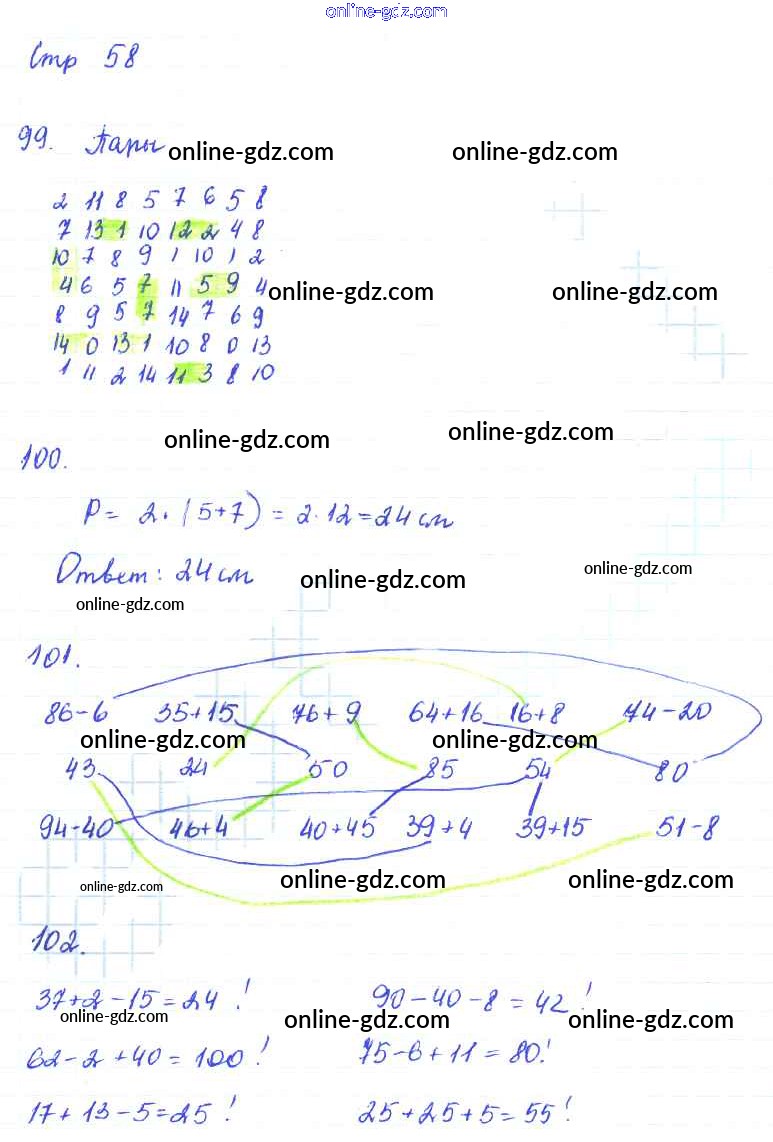 online-gdz.com
Стр 58
99. Пары online-gdz.com online-gdz.com
2 11 8 5 7 6 5 8
7 13 1 10 12 2 4 8
10 7 8 9 1 10 1 2
4 6 5 7 11 5 9 4 online-gdz.com online-gdz.com
8 9 5 7 14 7 6 9
14 0 13 1 10 8 0 13
1 11 2 14 11 3 8 10
online-gdz.com online-gdz.com
100.
P = 2 · (5+7) = 2·12 = 24 см
Ответ: 24 см online-gdz.com online-gdz.com
online-gdz.com
101.
86-6 35+15 76+9 64+16 16+8 74-20
online-gdz.com online-gdz.com
43 24 50 85 54 80
94-40 46+4 40+45 39+4 39+15 51-8
online-gdz.com online-gdz.com online-gdz.com
102.
37+2-15=24 ! 90-40-8=42 !
online-gdz.com online-gdz.com online-gdz.com
62-2+40=100 ! 75-6+11=80!
17+13-5=25 ! 25+25+5=55 !